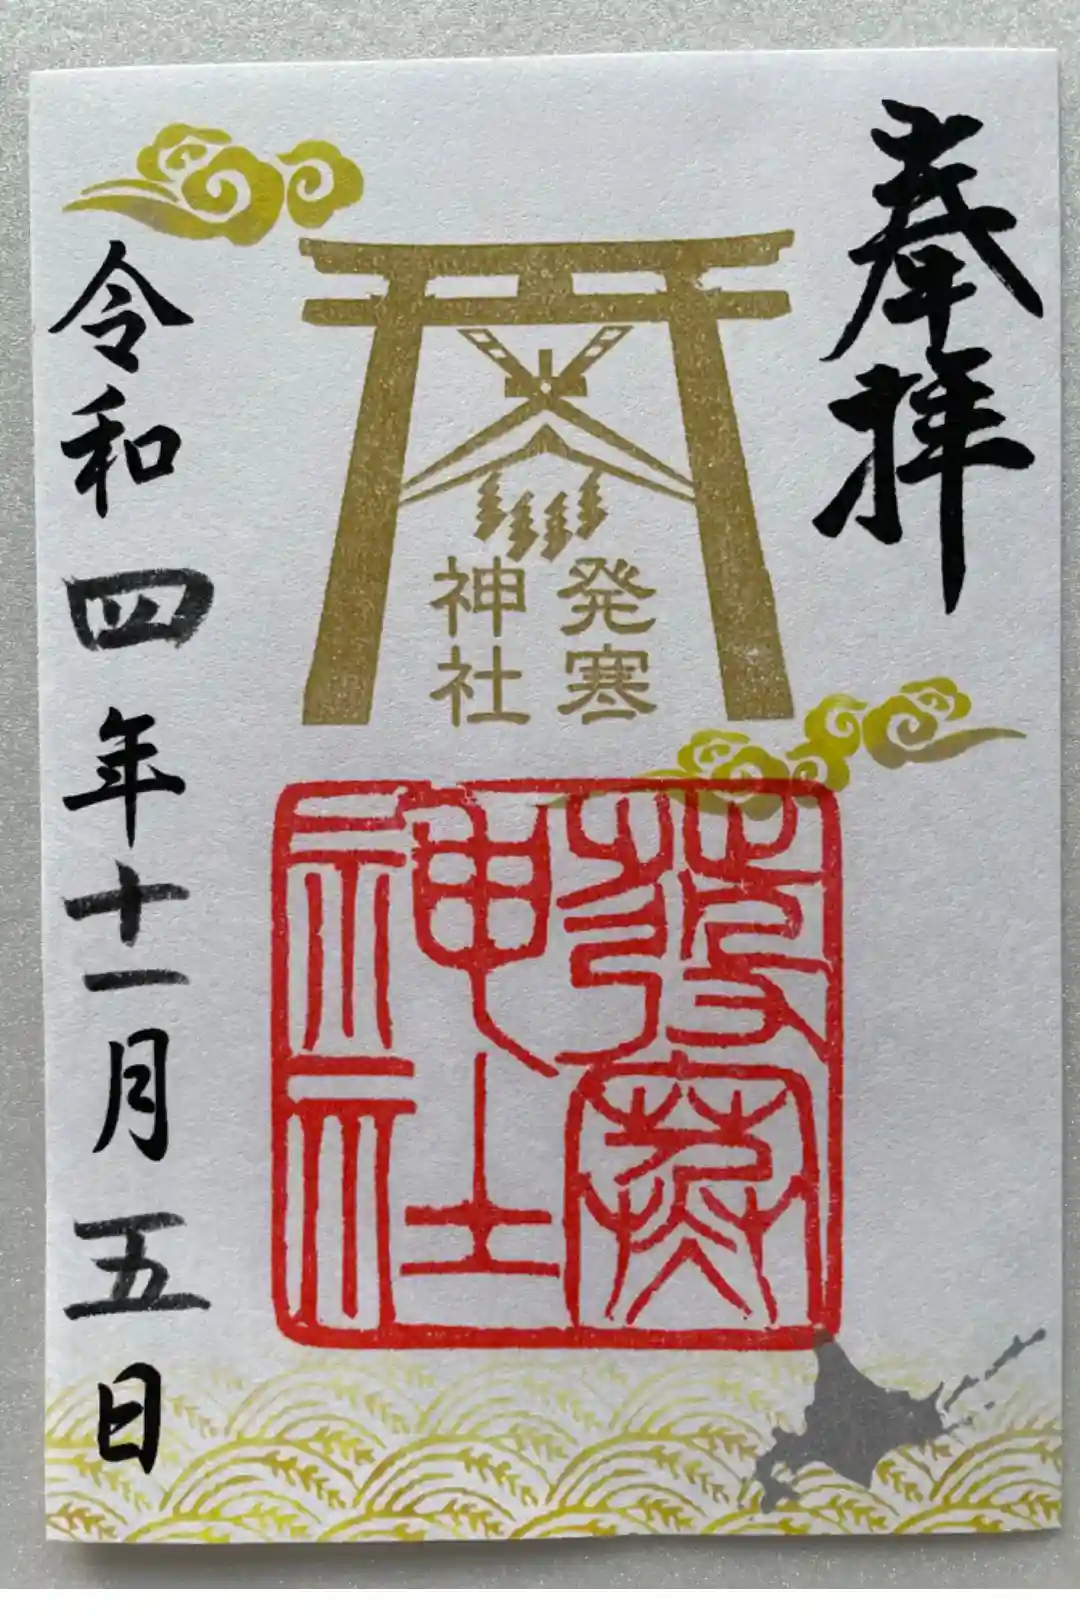 奉拝
発寒
神社
發寒
神社
令和四年十一月五日